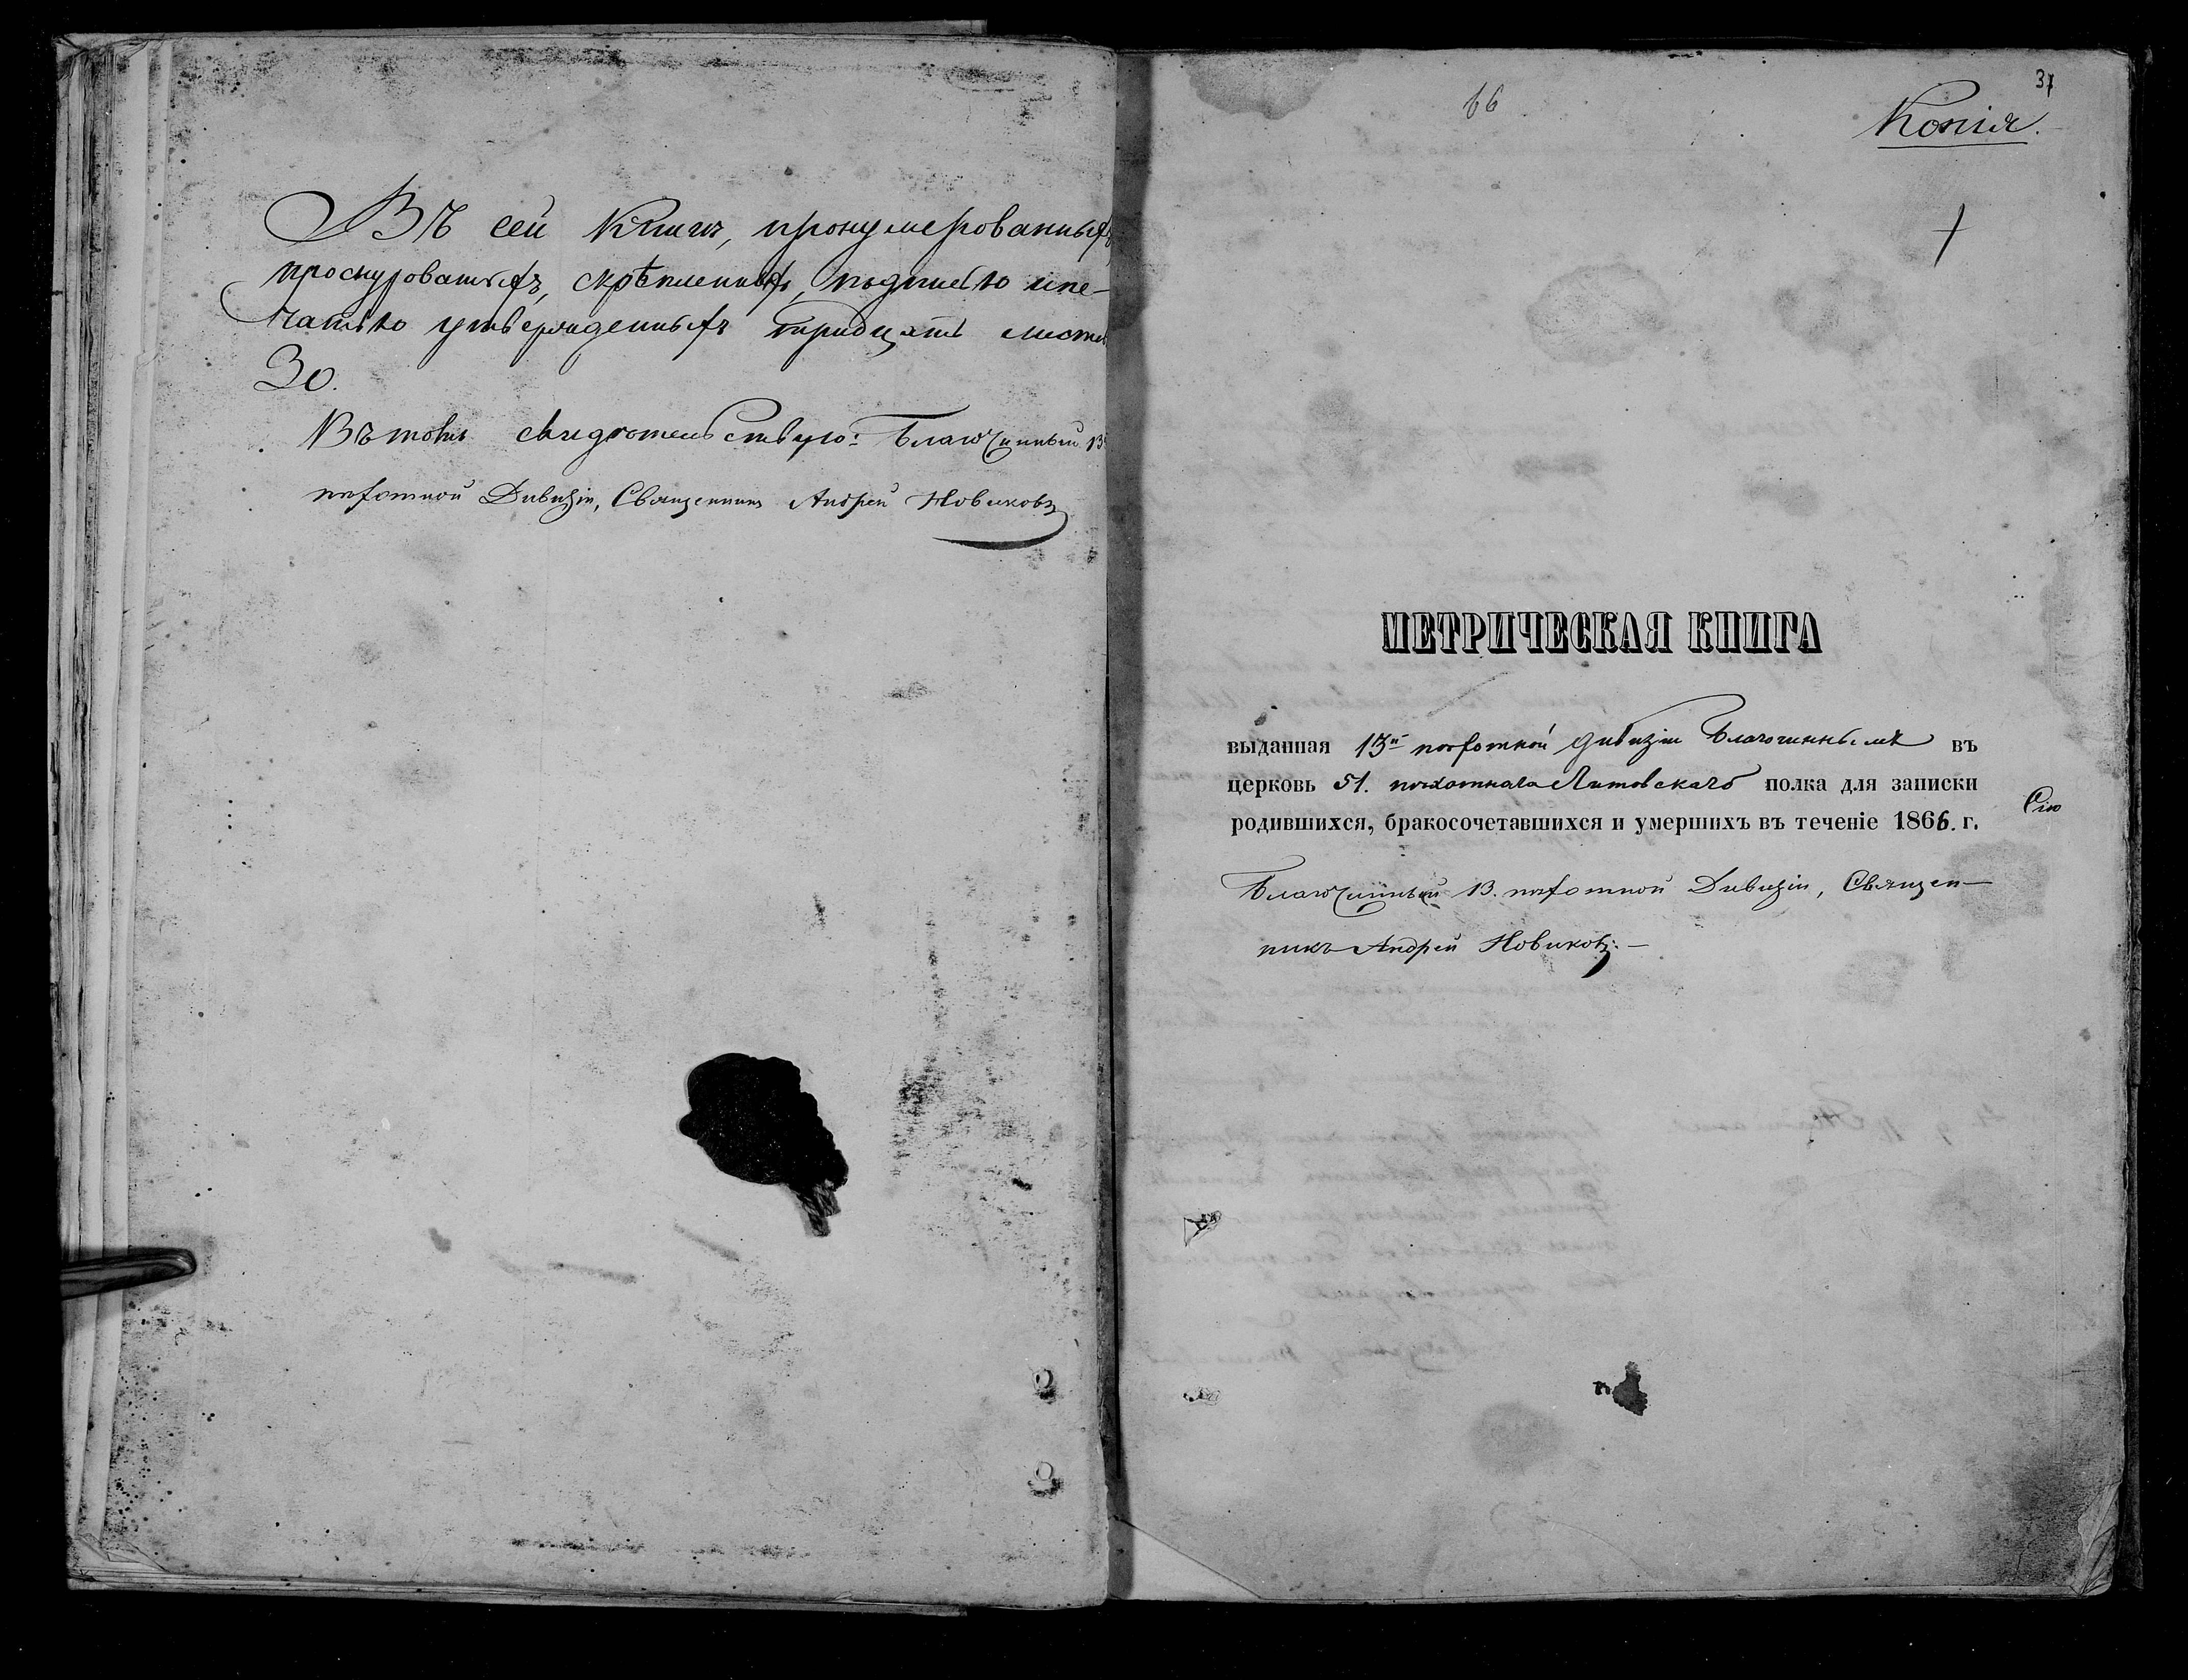 Въ сей Книгѣ, пронумерованныхъ,
проснурованныхъ, скрѣпленныхъ, подписью и пе-
чатью утвержденныхъ тридцать листовъ
30.
Въ томъ свидѣтельствую: Благочинный 13
пѣхотной Дивизіи, Священникъ Андрей Новиковъ
66
37
Копія.
МЕТРИЧЕСКАЯ КНИГА
выданная 13й пѣхотной дивизіи Благочиннымъ въ
церковь 51. пѣхотнаго Литовскаго полка для записки
родившихся, бракосочетавшихся и умершихъ въ теченіе 1866. г.
Сію
Благочинный 13. пѣхотной Дивизіи, Священ-
никъ Андрей Новиковъ.